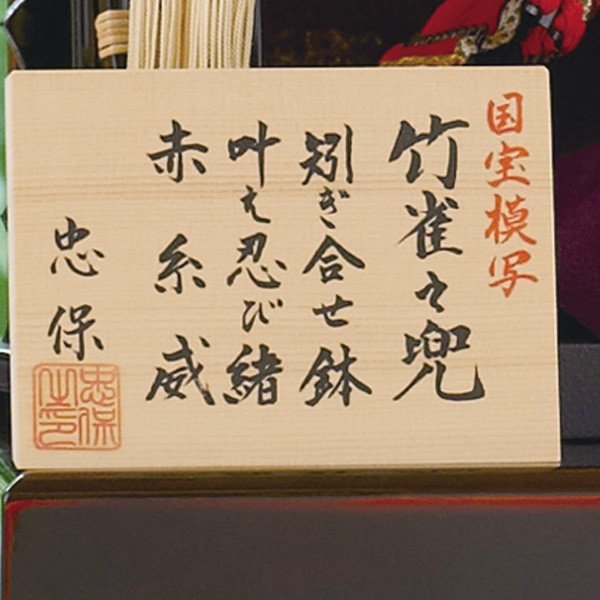 国宝模写
竹雀之兜
矧ぎ合せ鉢
叶え忍び緒
赤糸威
忠保
忠保之印